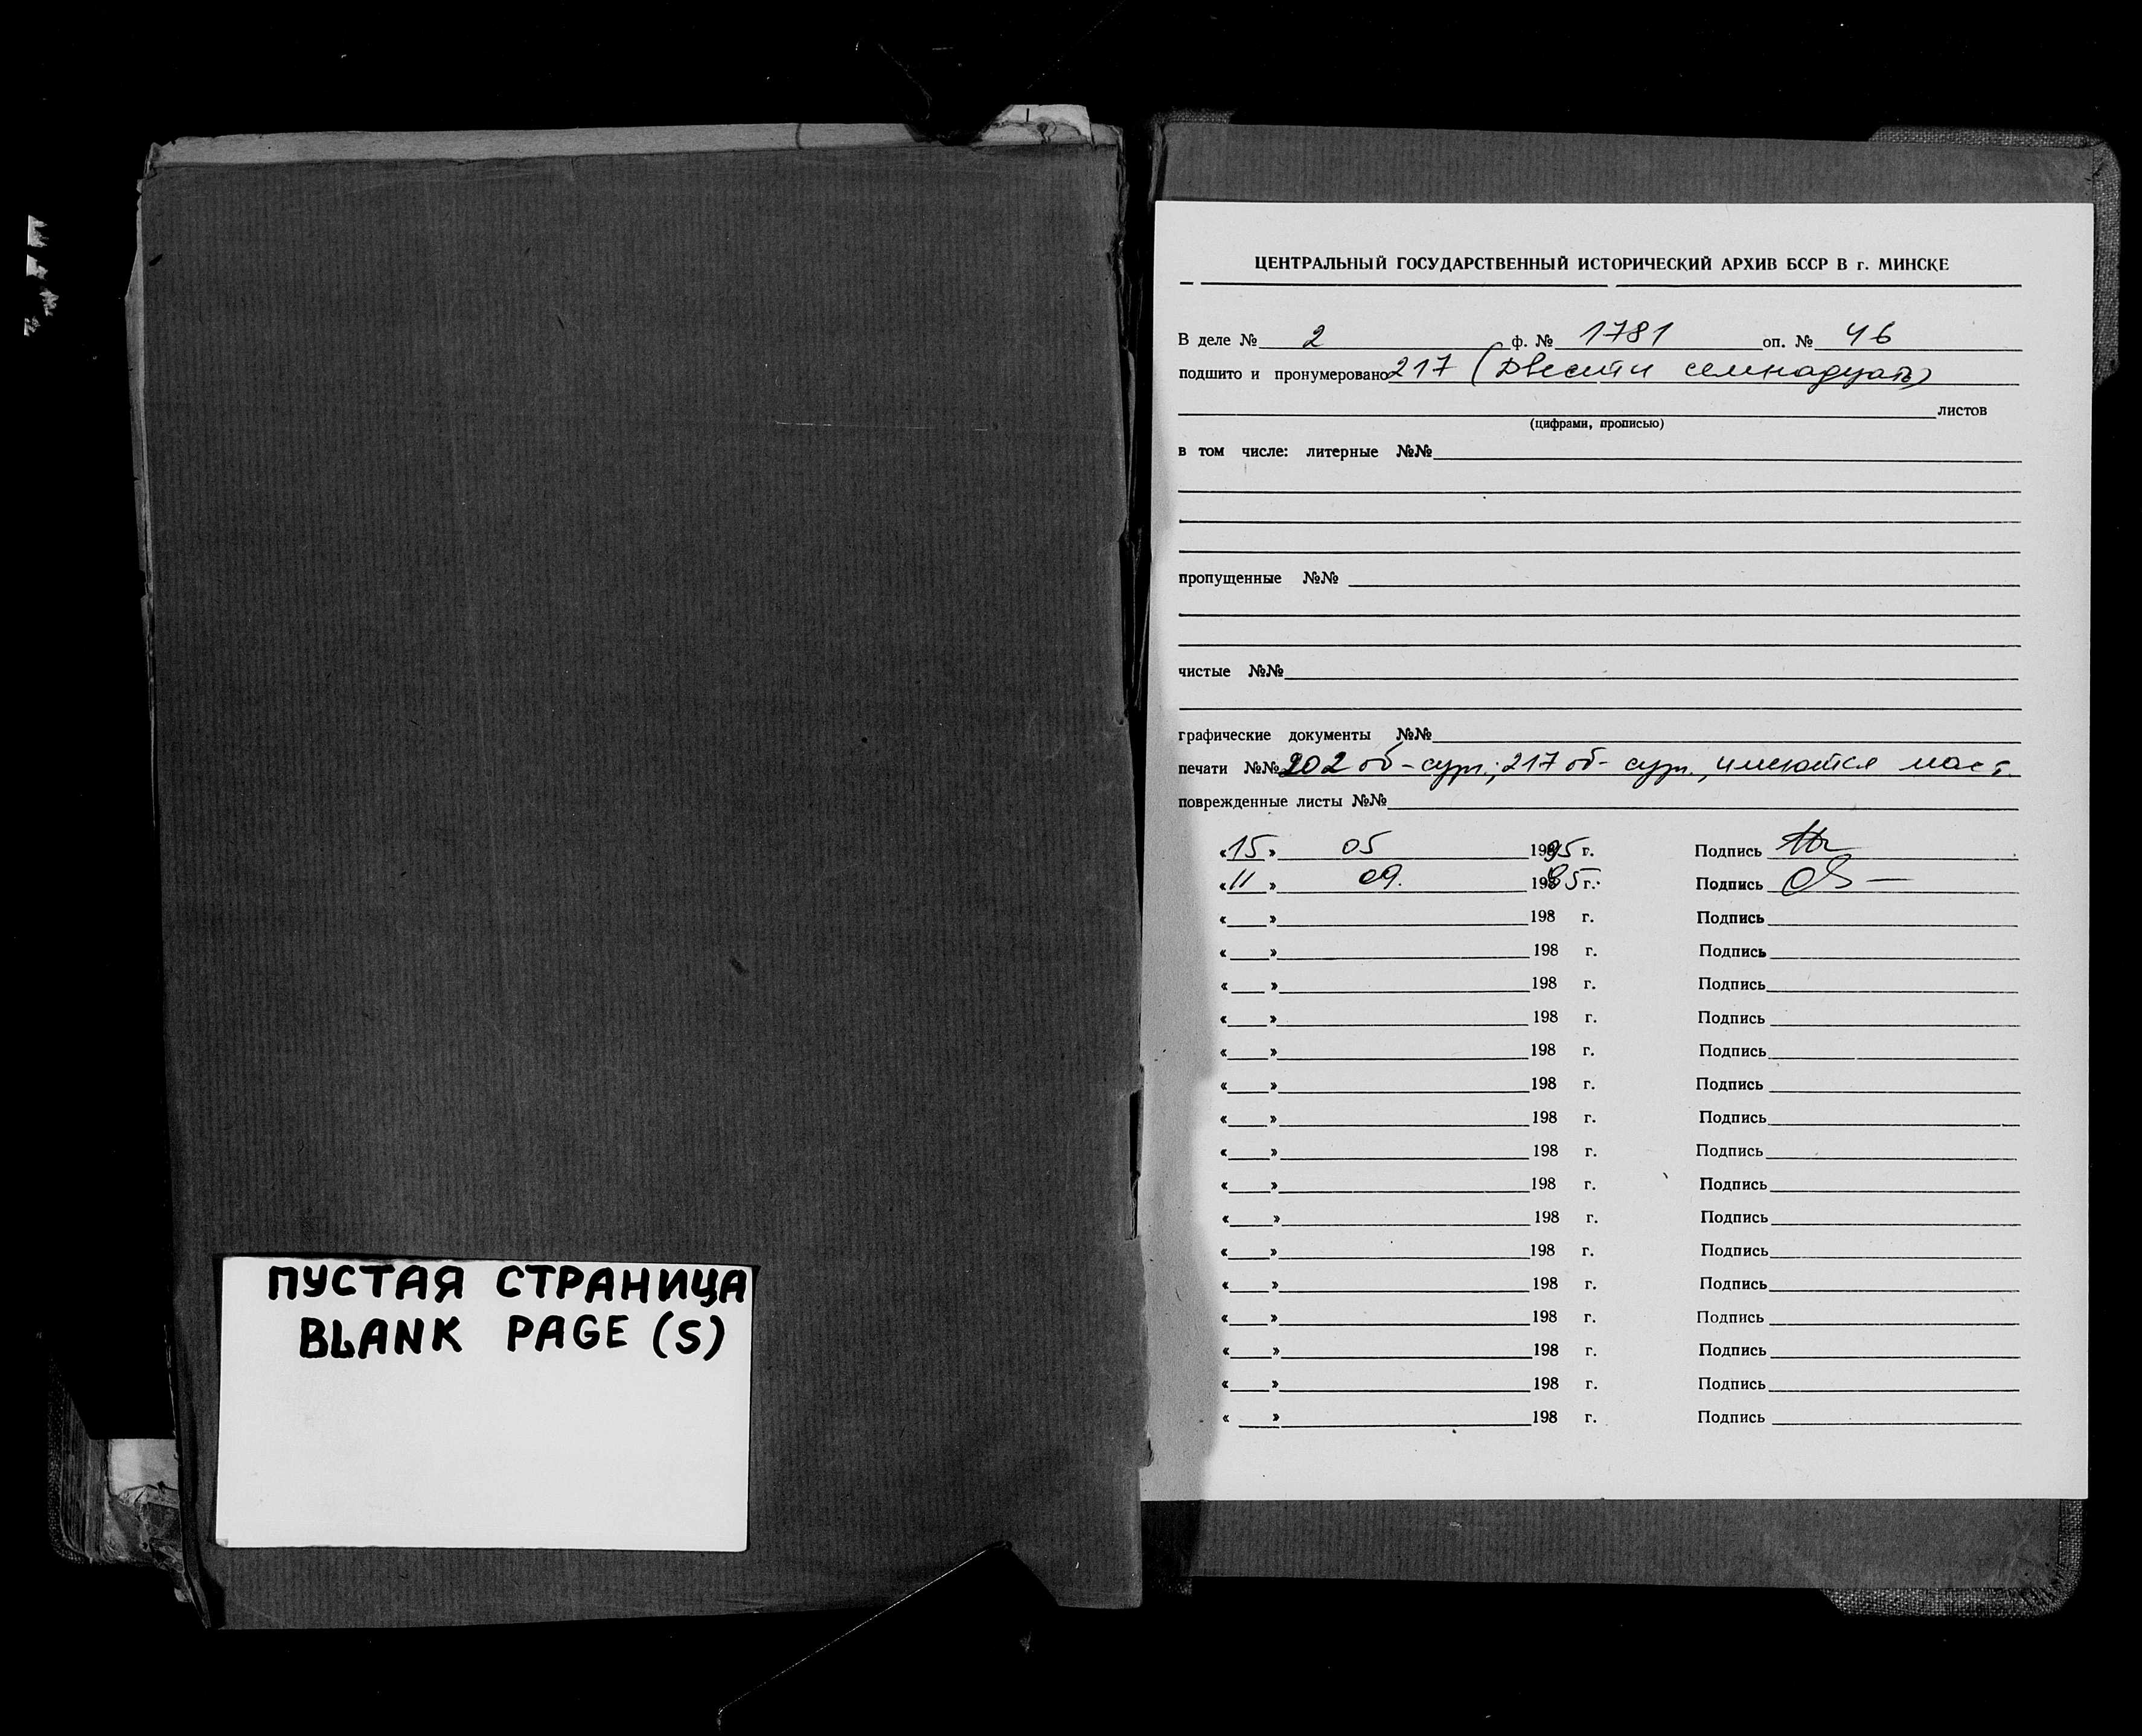 ПУСТАЯ СТРАНИЦА
BLANK PAGE (S)
ЦЕНТРАЛЬНЫЙ ГОСУДАРСТВЕННЫЙ ИСТОРИЧЕСКИЙ АРХИВ БССР В г. МИНСКЕ
В деле № 2 ф. № 1781 оп. № 46
подшито и пронумеровано 217 (Двести семнадцать)
листов
(цифрами, прописью)
в том числе: литерные №№
пропущенные №№
чистые №№
графические документы №№
печати №№ 202 об - сург.; 217 об - сург., имеются маст.
поврежденные листы №№
« 15 » 05 1995 г. Подпись
« 11 » 09. 1995 г. Подпись
« » 198 г. Подпись
« » 198 г. Подпись
« » 198 г. Подпись
« » 198 г. Подпись
« » 198 г. Подпись
« » 198 г. Подпись
« » 198 г. Подпись
« » 198 г. Подпись
« » 198 г. Подпись
« » 198 г. Подпись
« » 198 г. Подпись
« » 198 г. Подпись
« » 198 г. Подпись
« » 198 г. Подпись
« » 198 г. Подпись
« » 198 г. Подпись